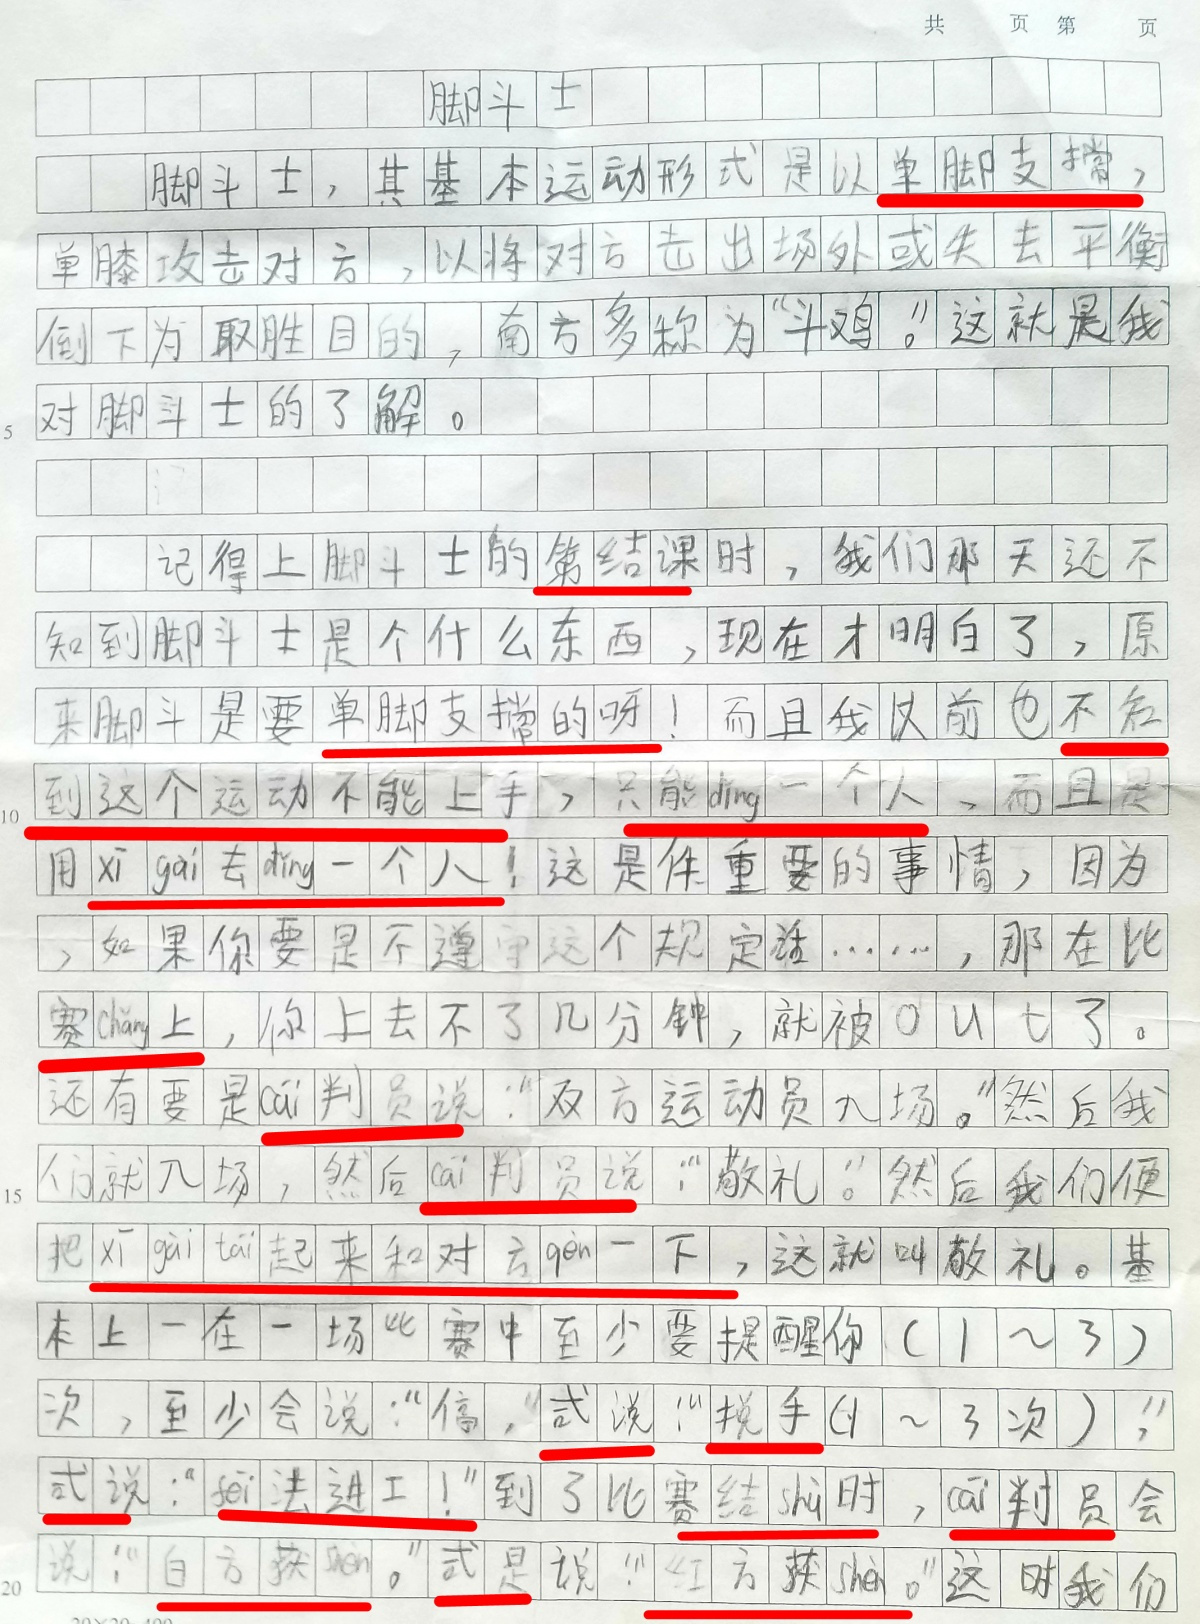 共 页 第 页
脚斗士
脚斗士，其基本运动形式是以单脚支撑，
单膝攻击对方，以将对方击出场外或失去平衡
倒下为取胜目的，南方多称为“斗鸡。”这就是我
5 对脚斗士的了解。
记得上脚斗士的第结课时，我们那天还不
知到脚斗士是个什么东西，现在才明白了，原
来脚斗是要单脚支撑的呀！而且我以前也不知
10 到这个运动不能上手，只能dǐng一个人，而且是
用xī gài去dǐng一个人！这是件重要的事情，因为
，如果你要是不遵守这个规定话……，那在比
赛chǎng上，你上去不了几分钟，就被out了。
还有要是cái判员说：“双方运动员入场。”然后我
15 们就入场，然后cái判员说：“敬礼”。然后我们便
把xī gài tái起来和对方pèn一下，这就叫敬礼。基
本上一在一场比赛中至少要提醒你（1～3）
次，至少会说：“停，”式说：“挩手（1～3次），”
式说：“fēi法进工！”到了比赛结shù时，cái判员会
20 说：“白方获shèn。”式是说：“红方获shèn。”这时我们
20×20=400